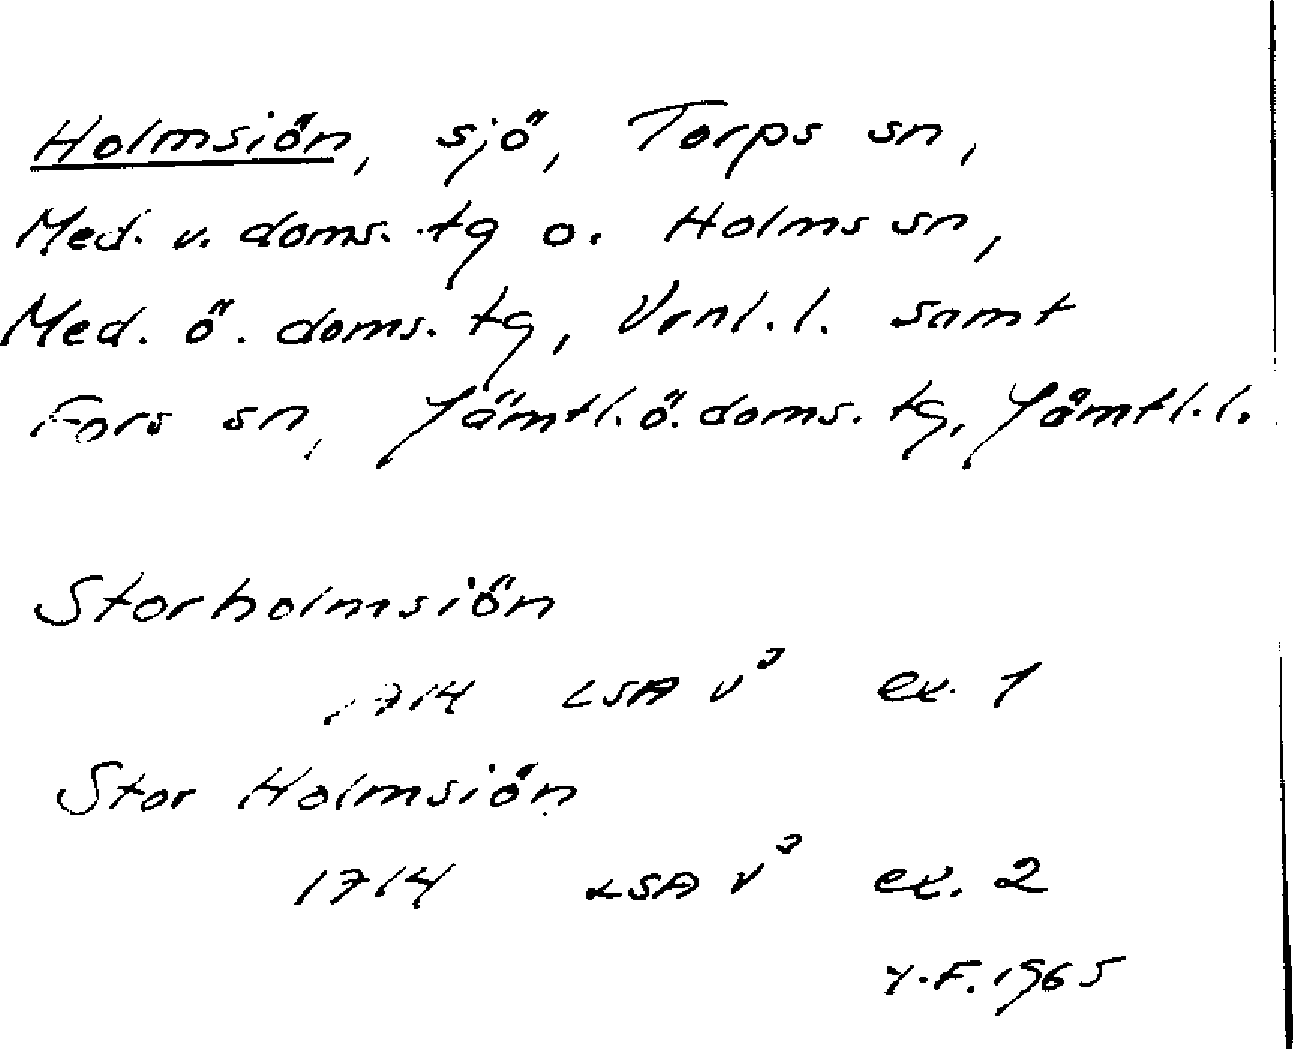 Holmsiön, sjö, Torps sn,
Med. v. doms. tg o. Holms sn,
Med. ö. doms. tg, Vrnl. l. samt
Fors sn, Jämtl. ö. doms. tg, Jämtl. l.
Storholmsiön
1714 LSA V³ ex. 1
Stor Holmsiön
1714 LSA V³ ex. 2
Y.F. 1965